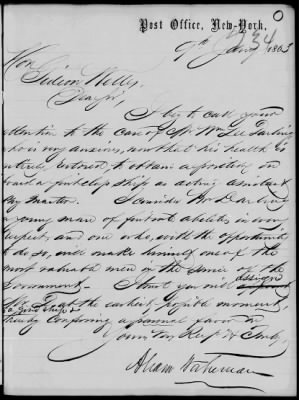 Post Office, New-York,
9th Jany 1863
Hon
Gideon Welles,
Dear Sir,
I beg to call your
attention to the case of Mr Wm Lee Darling
who is very anxious, now that his health is
entirely restored, to obtain a position on
board a first class ship as acting assistant
Pay Master. I consider Mr Darling
a young man of first rate abilities in every
respect, and one who, with the opportunity
to do so, will make himself one of the
most valuable men in the service of the
Government. I trust you will assign
him to a good ship at the earliest possible moment,
thereby conferring a personal favor on
Yours Very Resp & Truly,
Abram Wakeman